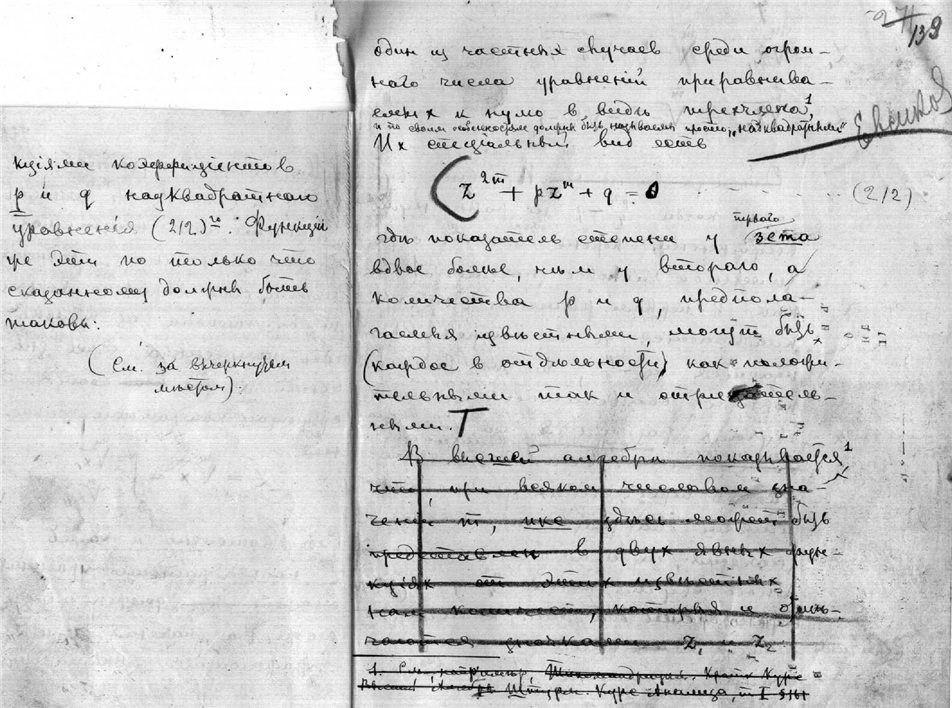 кціями коэффиціентов
р и q надквадратнаго
уравненія (212)го. Функціи
же эти по только что
сказанному должны быть
таковы:
(См. за вычеркнутым
местом)
139
один из частных случаев среди огром-
наго числа уравненій приравнива-
емых к нулю в видѣ трехчлена1
и по своим особенностям должен быть называем просто „надквадратным"
Их спеціальный вид есть
z^2m + pz^m + q = 0 (212)
перваго
гдѣ показатель степени у зета
вдвое больше, чѣм у втораго, а
количества р и q, предпола-
гаемыя извѣстными, могут быть
(каждое в отдѣльности) как положи-
тельными так и отрицатель-
ными.
В высшей алгебрѣ показывается1
что, при всяком числовом зна-
чении m, икс здѣсь может быть
представлен в двух явных фун-
кціях от этих извѣстных
нам количеств, которыя и обозна-
чаются значками z1 и z2
1. См. например, Тихомандрицкий. Кратк. Курс
Высшей Алгебры Штурм. Курс Анализа, т I